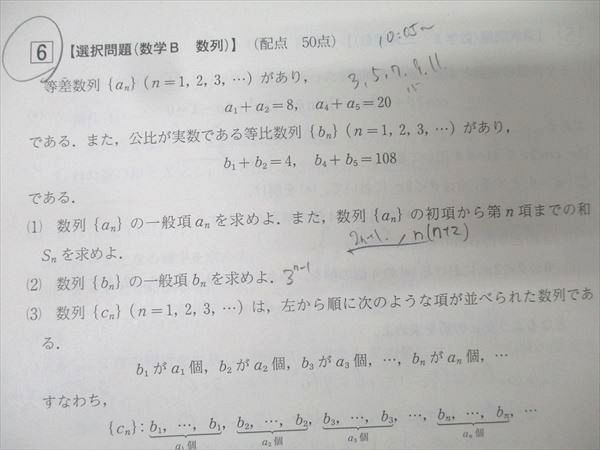 6 【選択問題(数学B 数列)】 (配点 50点) 10:05~
等差数列 {aₙ} (n=1, 2, 3, …) があり, 3, 5, 7, 9, 11.
a₁+a₂=8, a₄+a₅=20
である.また,公比が実数である等比数列 {bₙ} (n=1, 2, 3, …) があり,
b₁+b₂=4, b₄+b₅=108
である.
(1) 数列 {aₙ} の一般項 aₙ を求めよ.また,数列 {aₙ} の初項から第 n 項までの和
Sₙ を求めよ.
2n+1. , n(n+2)
(2) 数列 {bₙ} の一般項 bₙ を求めよ. 3ⁿ⁻¹
(3) 数列 {cₙ} (n=1, 2, 3, …) は,左から順に次のような項が並べられた数列であ
る.
b₁ が a₁ 個, b₂ が a₂ 個, b₃ が a₃ 個, …, bₙ が aₙ 個, …
すなわち,
{cₙ}: b₁, …, b₁, b₂, …, b₂, b₃, …, b₃, …, bₙ, …, bₙ, …
a₁個 a₂個 a₃個 aₙ個